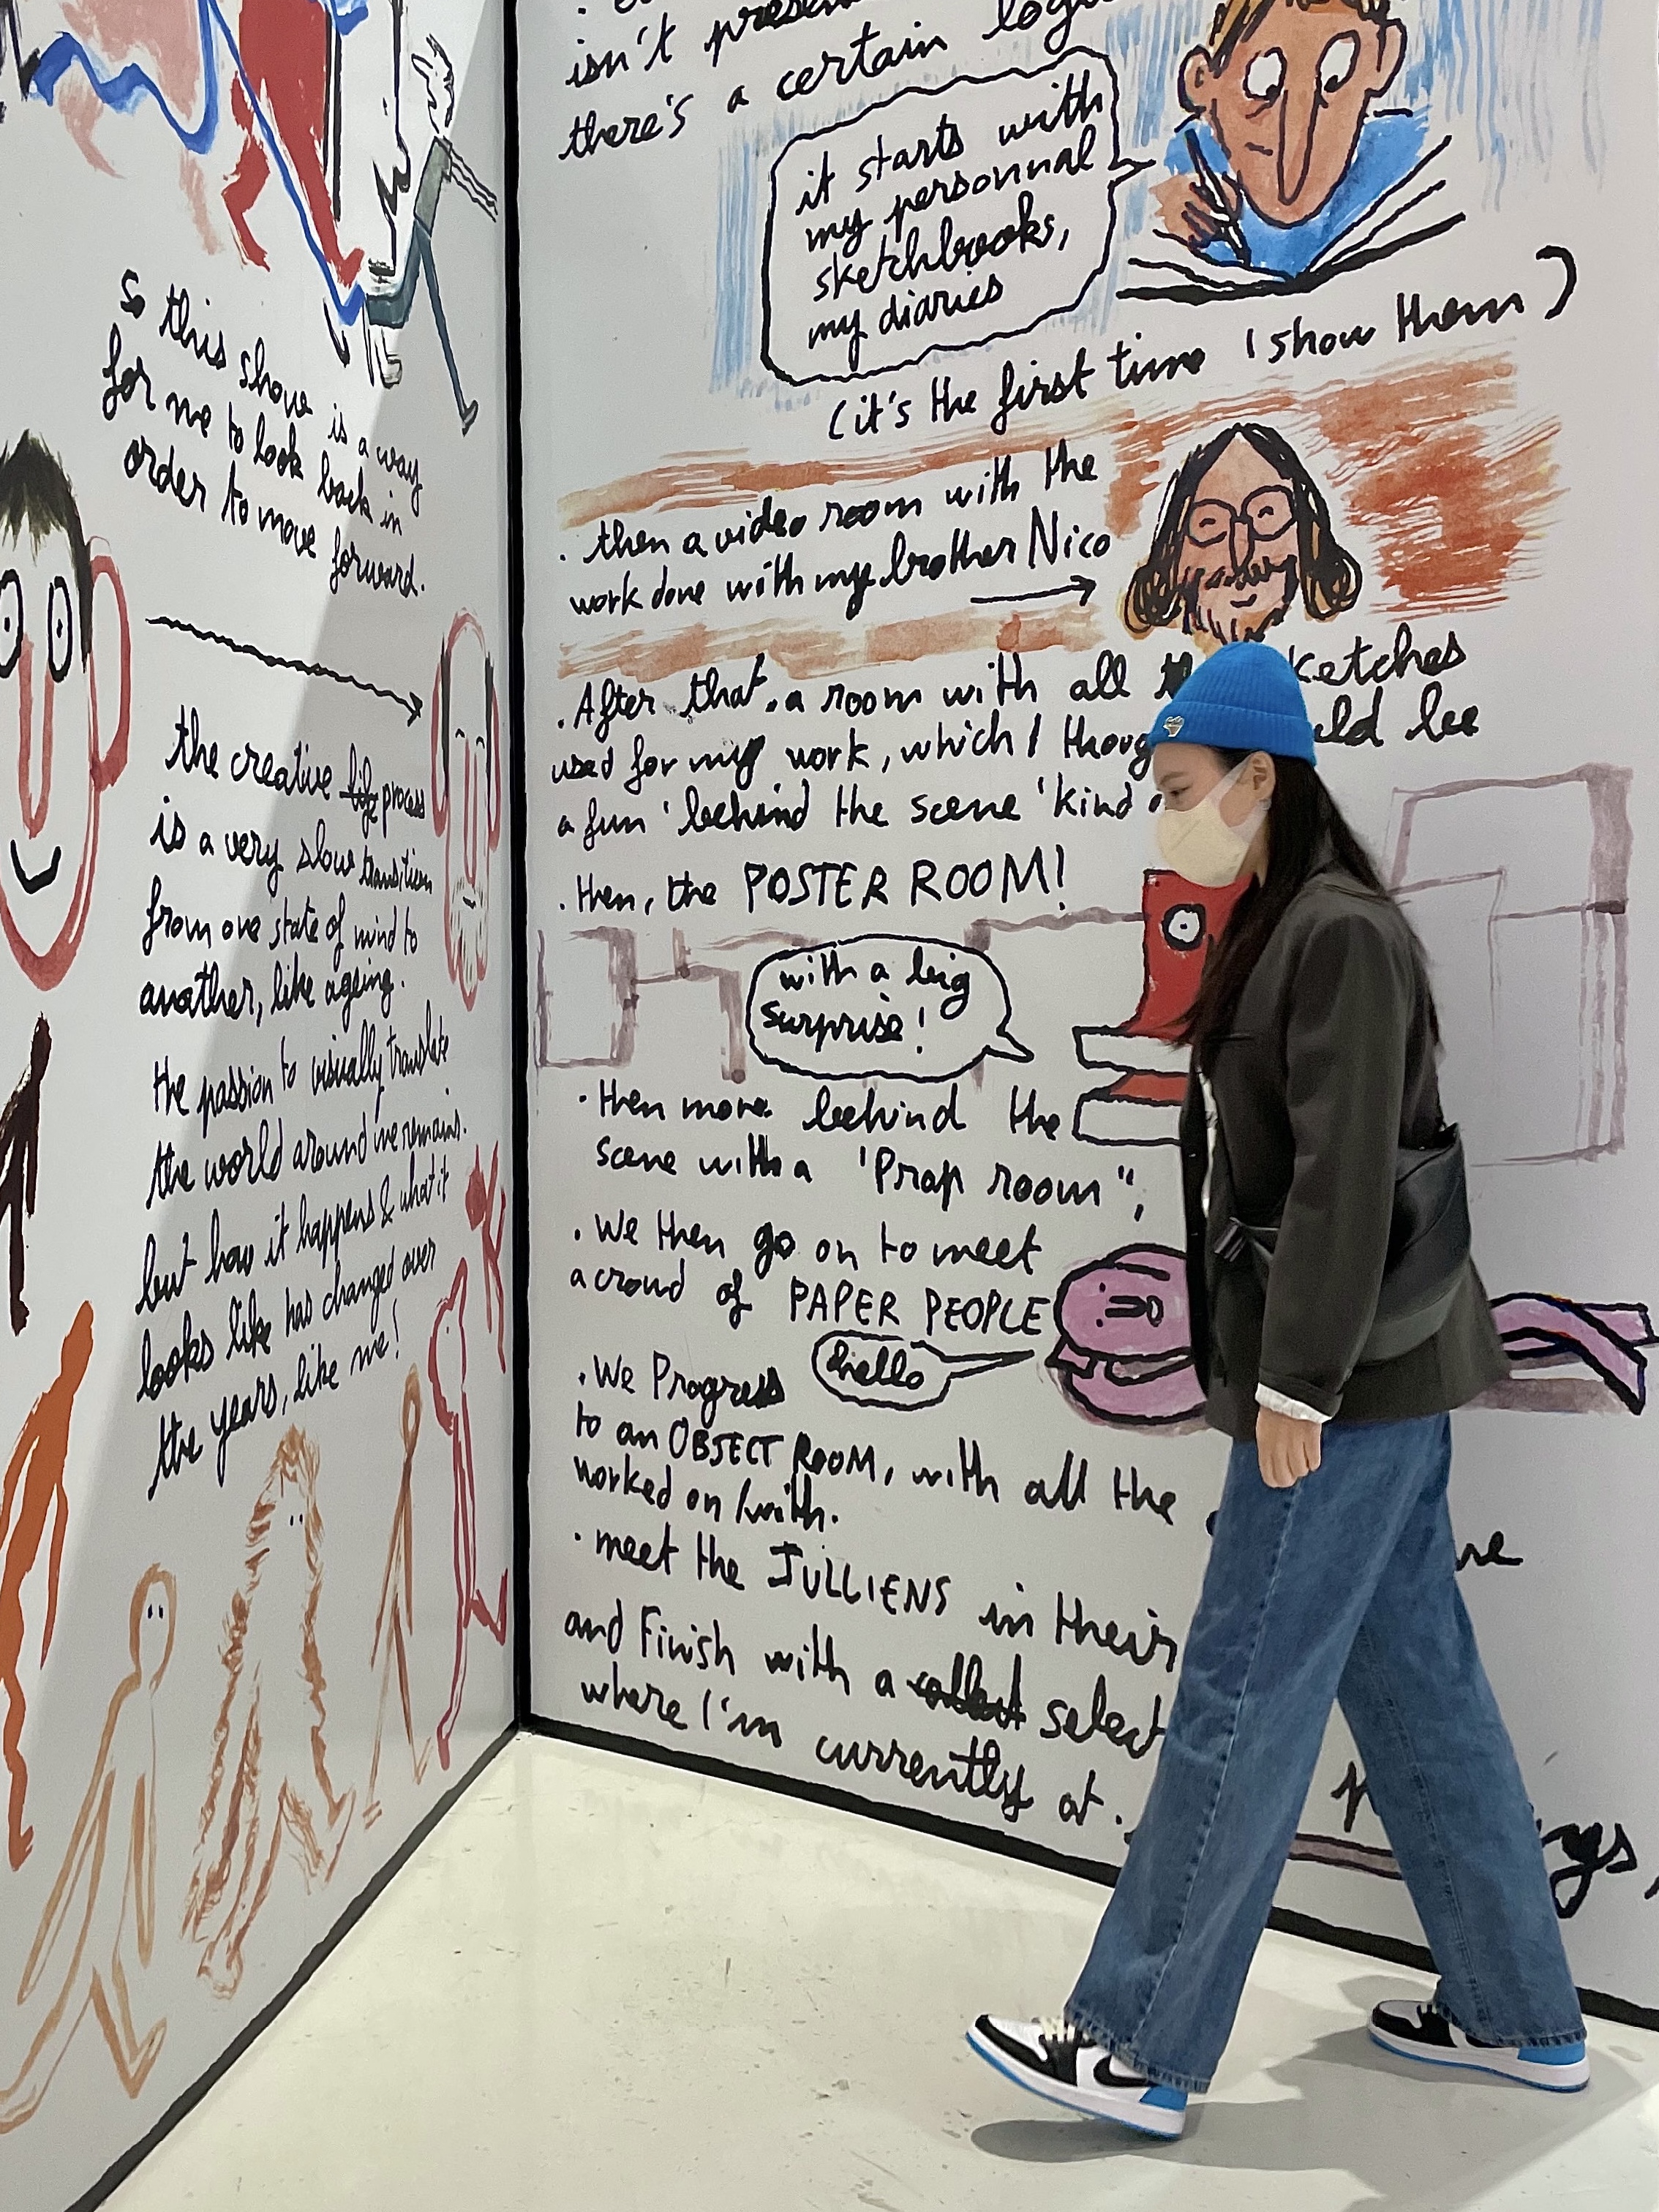 So this show is a way
for me to look back in
order to move forward.
the creative life process
is a very slow transition
from one state of mind to
another, like ageing.
the passion to visually translate
the world around me remains.
but how it happens & what it
looks like has changed over
the years, like me!
isn't
there's a certain
it starts with
my personnal
sketchbooks,
my diaries
(it's the first time I show them)
. then a video room with the
work done with my brother Nico
. After that, a room with all
used for my work, which I
a fun 'behind the scene' kind
. then, the POSTER ROOM!
with a big
surprise!
. then more behind the
scene with a 'Prop room",
. We then go on to meet
a crowd of PAPER PEOPLE
hello
. We Progress
to an OBJECT ROOM, with all the
worked on/with.
. meet the JULLIENS in their
and Finish with a
where I'm currently at.